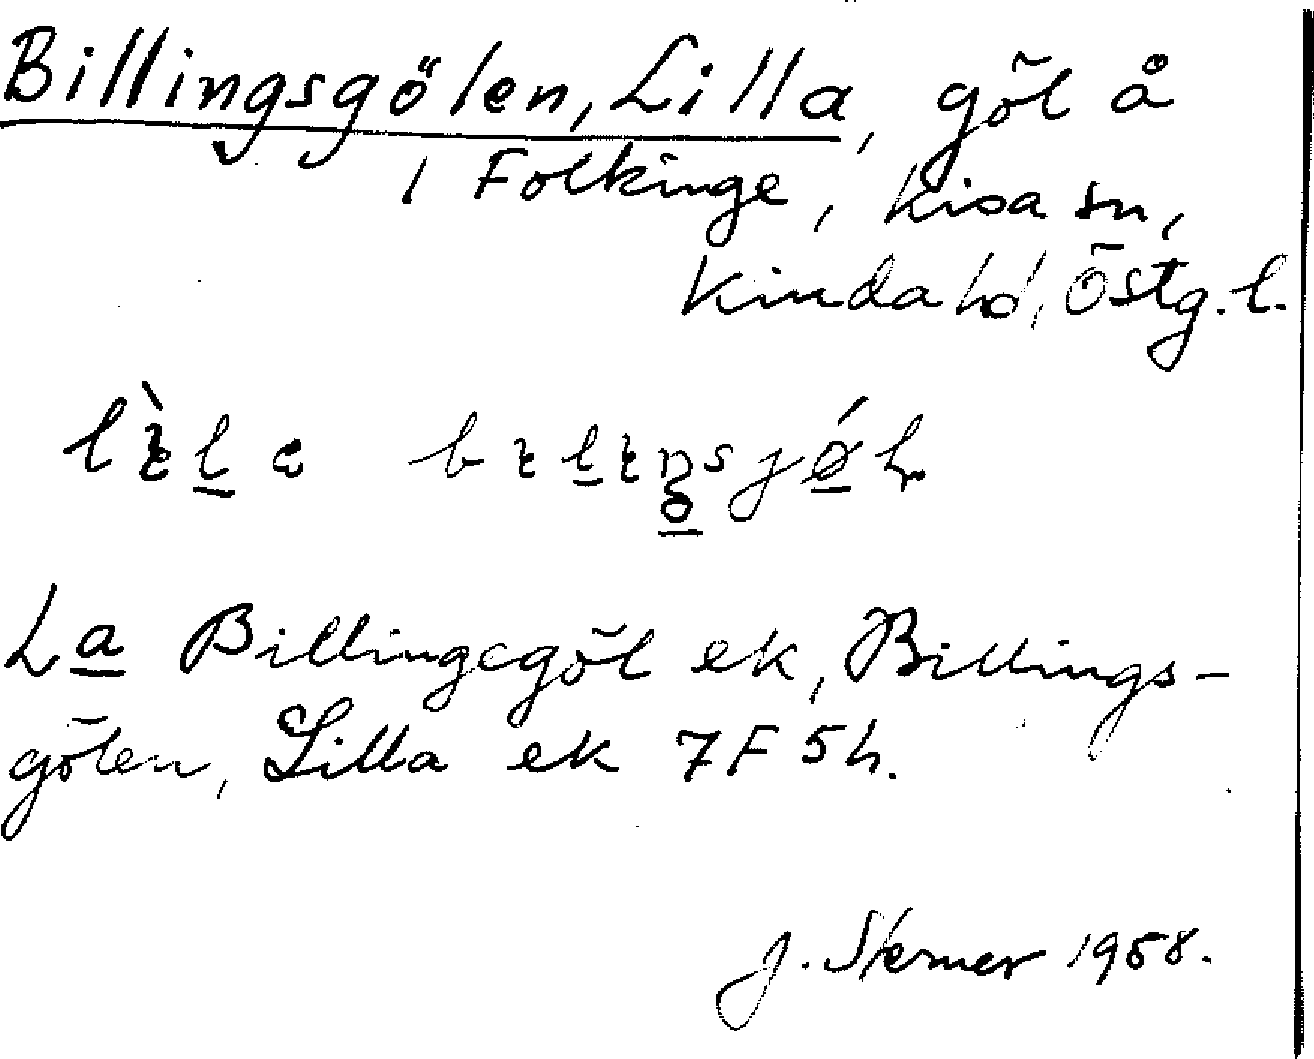 Billingsgölen, Lilla, göl å
1 Folkinge, Kisa sn,
Kinda hd, Östg.l.
La Billingegöl ek, Billings-
gölen, Lilla ek 7F 5h.
J. Sterner 1958.